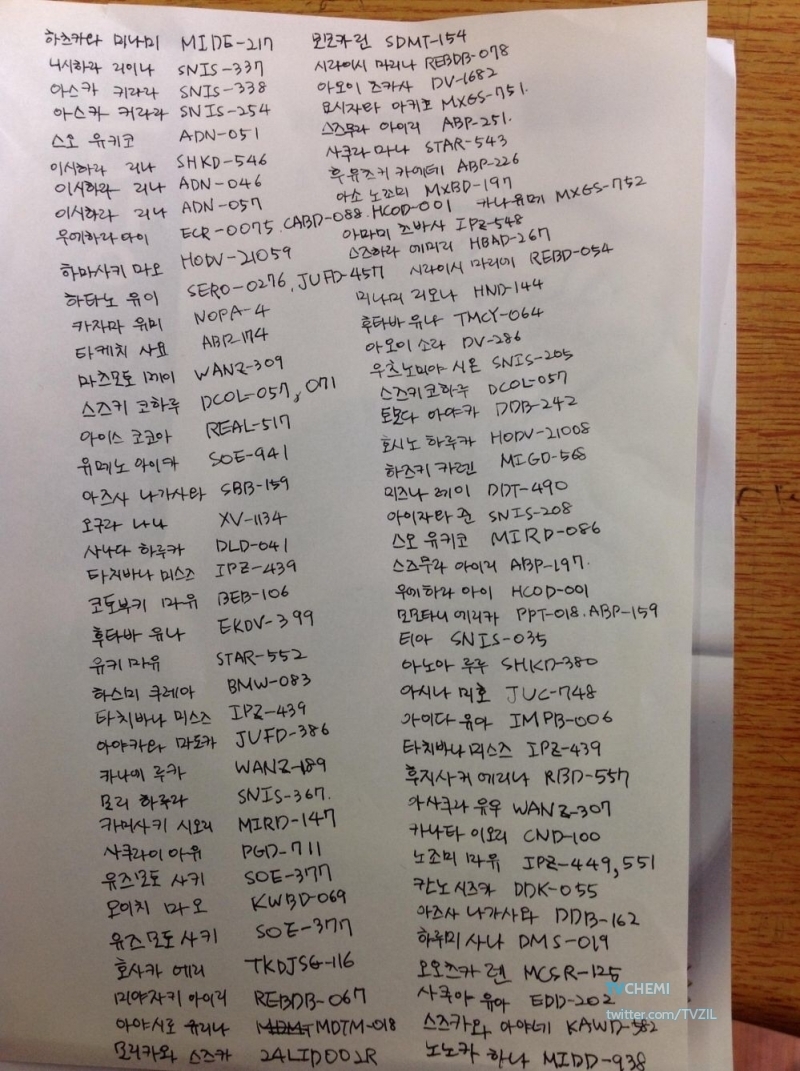 하즈키라 미나미 MIDE-217
니시하라 리이나 SNIS-337
아스카 키라라 SNIS-338
아스카 키라라 SNIS-254
스오 유키코 ADN-051
이시하라 리나 SHKD-546
이시하라 리나 ADN-046
이시하라 리나 ADN-057
우에하라 아이 ECR-0075, CABD-088. HCOD-001
하마사키 마오 HODV-21059
하타노 유이 SERO-0276, JUFD-457
카자마 유미 NOPA-4
타케치 사요 ABP-174
마츠모토 메이 WANZ-309
스즈키 코하루 DCOL-057, 071
아이스 코코아 REAL-517
유메노 아이카 SOE-941
아즈사 나가사와 SBB-159
오구라 나나 XV-1134
사나다 하루카 DLD-041
타치바나 미스즈 IPZ-439
코토부키 마유 BEB-106
후타바 유나 EKDV-399
유키 마유 STAR-552
하스미 쿠레아 BMW-083
타치바나 미스즈 IPZ-439
아야카와 마도카 JUFD-386
카나에 루카 WANZ-189
모리 하루라 SNIS-367.
카미사키 시오리 MIRD-147
사쿠라이 아유 PGD-711
유즈모토 사키 SOE-377
오이치 마오 KWBD-069
유즈모토 사키 SOE-377
호사카 에리 TKDJSG-116
미야자키 아이리 REBDB-067
아야시로 유리나 MDTM-018
모리카와 스즈카 24LID002R
모모카 린 SDMT-154
시라이시 마리나 REBDB-078
아오이 츠카사 DV-1682
요시자와 아키호 MXGS-751.
스즈무라 아이리 ABP-251.
사쿠라 마나 STAR-543
후유즈키 카에데 ABP-226
아소 노조미 MXBD-197
카나 유메 MXGS-752
아마미 츠바사 IPZ-548
스즈하라 에미리 HBAD-267
시라이시 마리에 REBD-054
미나미 리오나 HND-144
후타바 유나 TMCY-064
아오이 소라 DV-286
우츠노미야 시온 SNIS-205
스즈키 코하루 DCOL-057
토모다 아야카 DDB-242
호시노 하루카 HODV-21008
하즈키 카렌 MIGD-568
미즈나 레이 DDT-490
아이자와 준 SNIS-208
스오 유키코 MIRD-086
스즈무라 아이리 ABP-197.
우에하라 아이 HCOD-001
모모타니 에리카 PPT-018. ABP-159
티아 SNIS-035
아노아 루루 SHKD-380
아시나 미호 JUC-748
아이다 유아 IMPB-006
타치바나 미스즈 IPZ-439
후지사키 에리나 RBD-557
아사쿠라 유우 WANZ-307
카나타 이오리 CND-100
노조미 마유 IPZ-449, 551
칸노 시즈카 DDK-055
아즈사 나가사와 DDB-162
하루미 사나 DMS-019
오오츠카 렌 MCSR-125
사쿠아 유아 EDD-202
스즈카와 아야네 KAWD-582
노노카 하나 MIDD-938
TVCHEMI
twitter.com/TVZIL